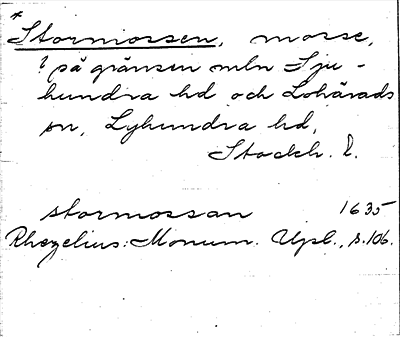 *
Stormossen, mosse,
? på gränsen mln Sju-
hundra hd och Lohärads
sn, Lyhundra hd,
Stockh. l.
stormossan 1635
Rhezelius: Monum. Upl., s. 106.